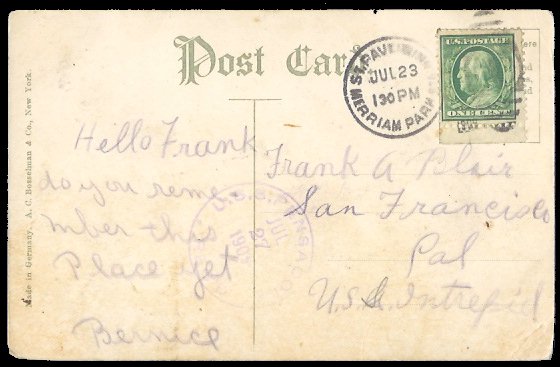 Post Card
ST. PAUL, MINN.
JUL 23
1 30 PM
MERRIAM PARK
U.S. POSTAGE
ONE CENT
Hello Frank
do you reme-
mber this
Place yet
Bernice
Frank A Blair
San Francisco
Cal
U.S.S. Intrepid
U.S.S. PENSACOLA
JUL
27
Made in Germany. A. C. Bosselman & Co., New York.